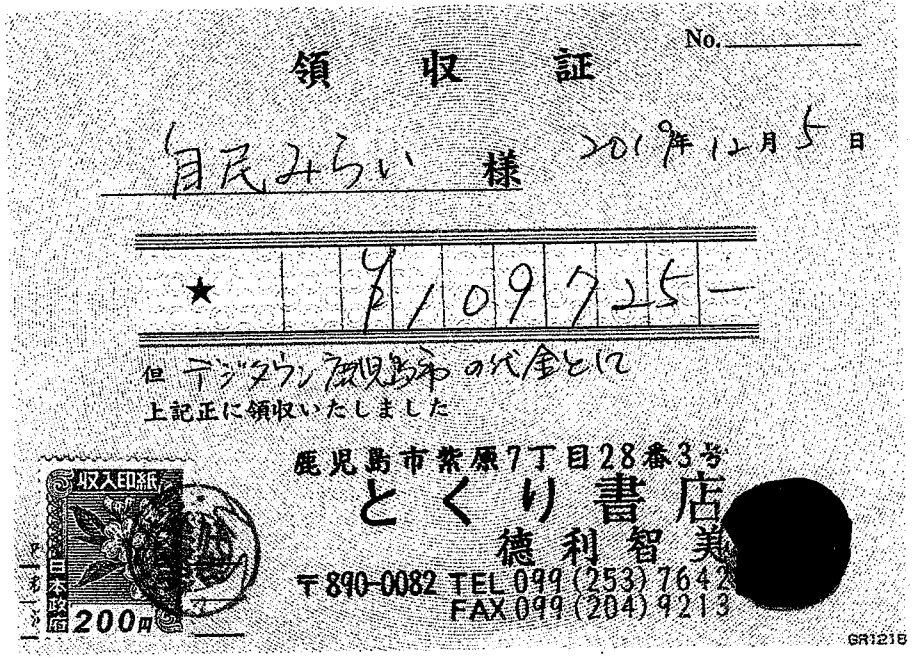 No.
領収証
自民みらい 様 2019年12月5日
★ ¥109725-
但 デジタウン鹿児島市の代金として
上記正に領収いたしました
鹿児島市紫原7丁目28番3号
とくり書店
徳利智美
〒890-0082 TEL 099(253)7642
FAX 099(204)9213
収入印紙
日本政府
200円
GR1218